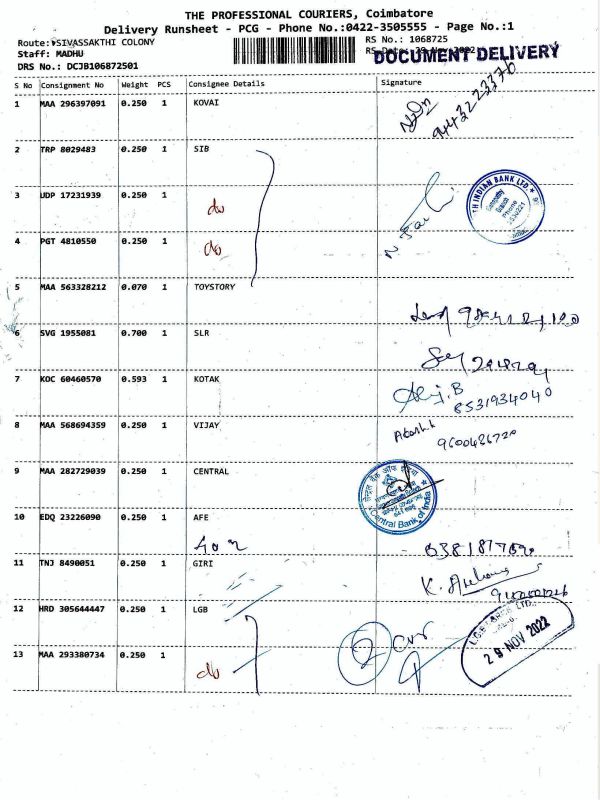 THE PROFESSIONAL COURIERS, Coimbatore
Delivery Runsheet - PCG - Phone No.:0422-3505555 - Page No.:1
Route: SIVASSAKTHI COLONY
RS No.: 1068725
Staff: MADHU
RS Date: 29 Nov 2022
DOCUMENT DELIVERY
DRS No.: DCJB106872501
S No Consignment No Weight PCS Consignee Details Signature
1 MAA 296397091 0.250 1 KOVAI
9443223376
2 TRP 8029483 0.250 1 SIB
3 UDP 17231939 0.250 1 do
TH INDIAN BANK LTD.
4 PGT 4810550 0.250 1 do
5 MAA 563328212 0.070 1 TOYSTORY
6 SVG 1955081 0.700 1 SLR
7 KOC 60460570 0.593 1 KOTAK
8531934040
8 MAA 568694359 0.250 1 VIJAY
Akash.k
9600486720
9 MAA 282729039 0.250 1 CENTRAL
सेन्ट्रल बैंक ऑफ इंडिया
Central Bank of India
10 EDQ 23226090 0.250 1 AFE
11 TNJ 8490051 0.250 1 GIRI
12 HRD 305644447 0.250 1 LGB
2
29 NOV 2022
13 MAA 293380734 0.250 1 do